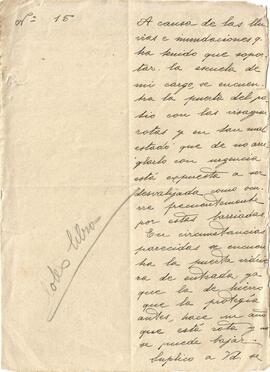 Nº 15
A causa de las llu
vias e inundaciones q.
ha tenido que sopor
tar la escuela de
mi cargo, se encuen
tra la puerta del pa
tio con las visagras
rotas y en tan mal
estado que de no arre
glarlo con urgencia
está expuesta a ser
desvalijada como ocu
rre frecuentemente
por estas barriadas.
En circunstancias
parecidas se encuen
tra la puerta
ra de entrada ya
que la de hierro
que la protegía
antes, hace un año
que está rota y no
se puede bajar.
Suplico a Vd. se